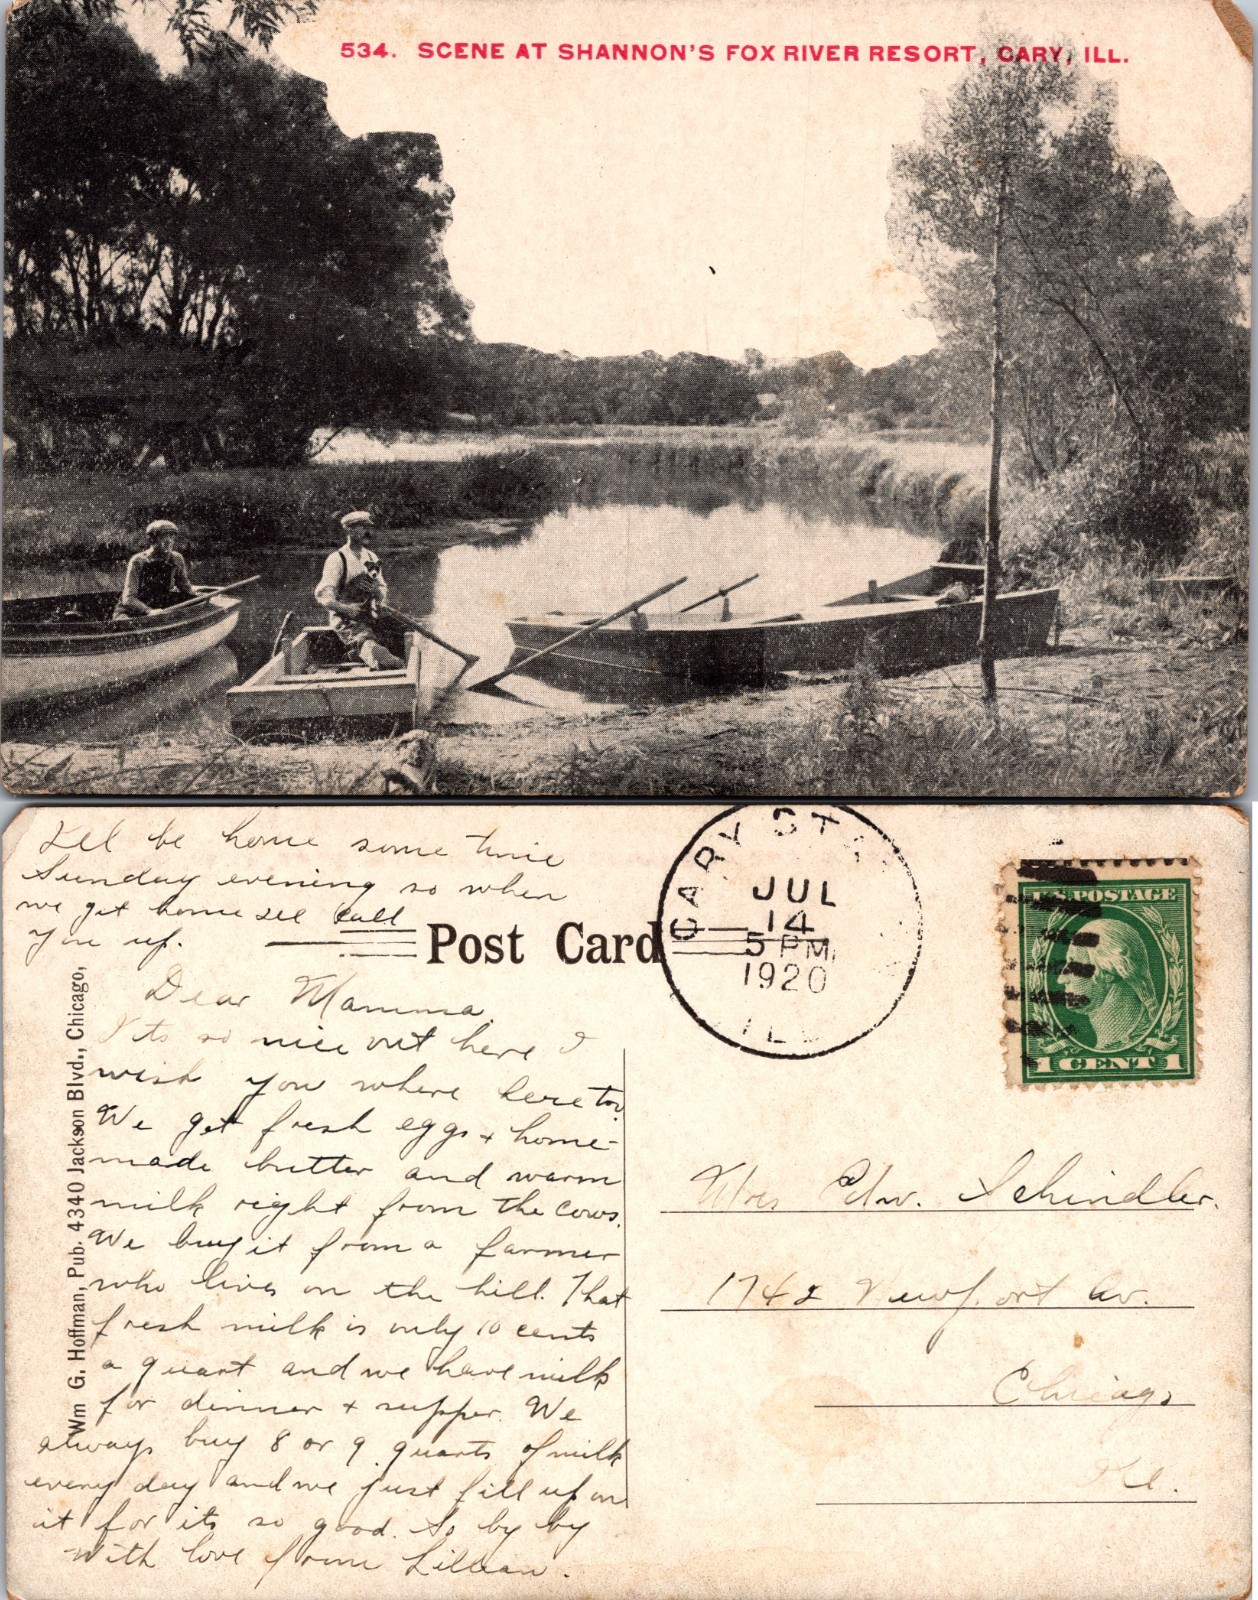 534. SCENE AT SHANNON'S FOX RIVER RESORT, CARY, ILL.
I'll be home some time
Sunday evening so when
we get home I'll call
you up.
Post Card
CARY STA
JUL
14
5 PM
1920
ILL
U.S. POSTAGE
1 CENT 1
Wm G. Hoffman, Pub. 4340 Jackson Blvd., Chicago,
Dear Mamma.
Its so nice out here I
wish you where here too.
We get fresh eggs + home-
made butter and warm
milk right from the cows.
We buy it from a farmer
who lives on the hill. That
fresh milk is only 10 cents
a quart and we have milk
for dinner + supper. We
always buy 8 or 9 quarts of milk
every day and we just fill up on
it for its so good. So by by
With love from Lillian.
Mrs Edw. Schindler.
1742 Newport Av.
Chicago
Ill.